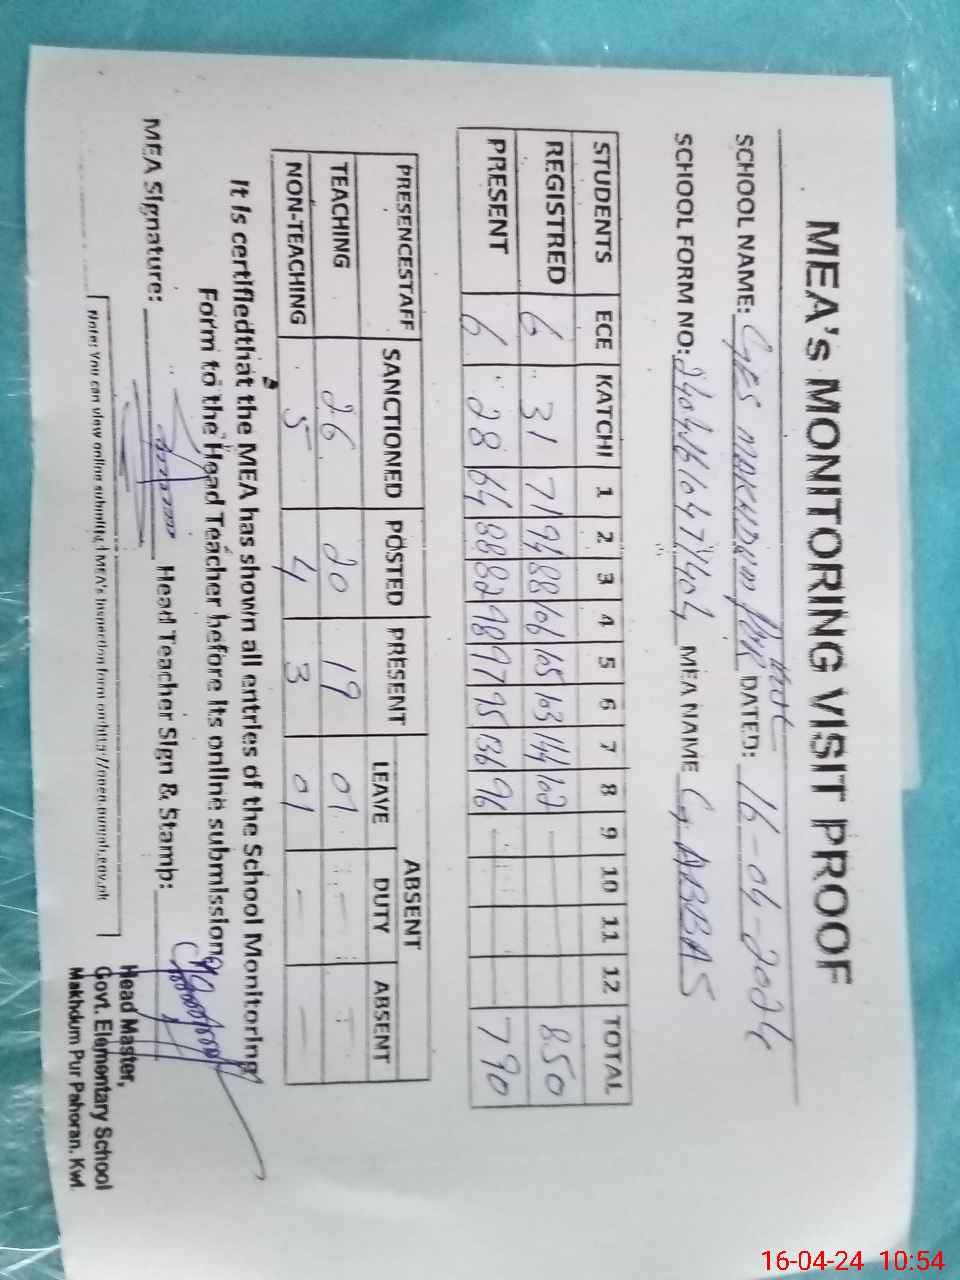 MEA's MONITORING VISIT PROOF
SCHOOL NAME: GES MAKHDUM PUR DATED: 16-04-2024
SCHOOL FORM NO: MEA NAME G. ABBAS
STUDENTS ECE KATCHI 1 2 3 4 5 6 7 8 9 10 11 12 TOTAL
REGISTRED 6 31 71 94 88 106 105 103 144 102 850
PRESENT 6 28 64 88 82 98 97 95 136 96 790
PRESENCESTAFF SANCTIONED POSTED PRESENT ABSENT
LEAVE DUTY ABSENT
TEACHING 26 20 19 01 - -
NON-TEACHING 5 4 3 01 - -
It is certifiedthat the MEA has shown all entries of the School Monitoring
Form to the Head Teacher before its online submission
MEA Signature: Head Teacher Sign & Stamp:
Head Master,
Govt. Elementary School
Makhdum Pur Pahoran. Kwl.
Note: You can view online submitted MEA's inspection form on
16-04-24 10:54